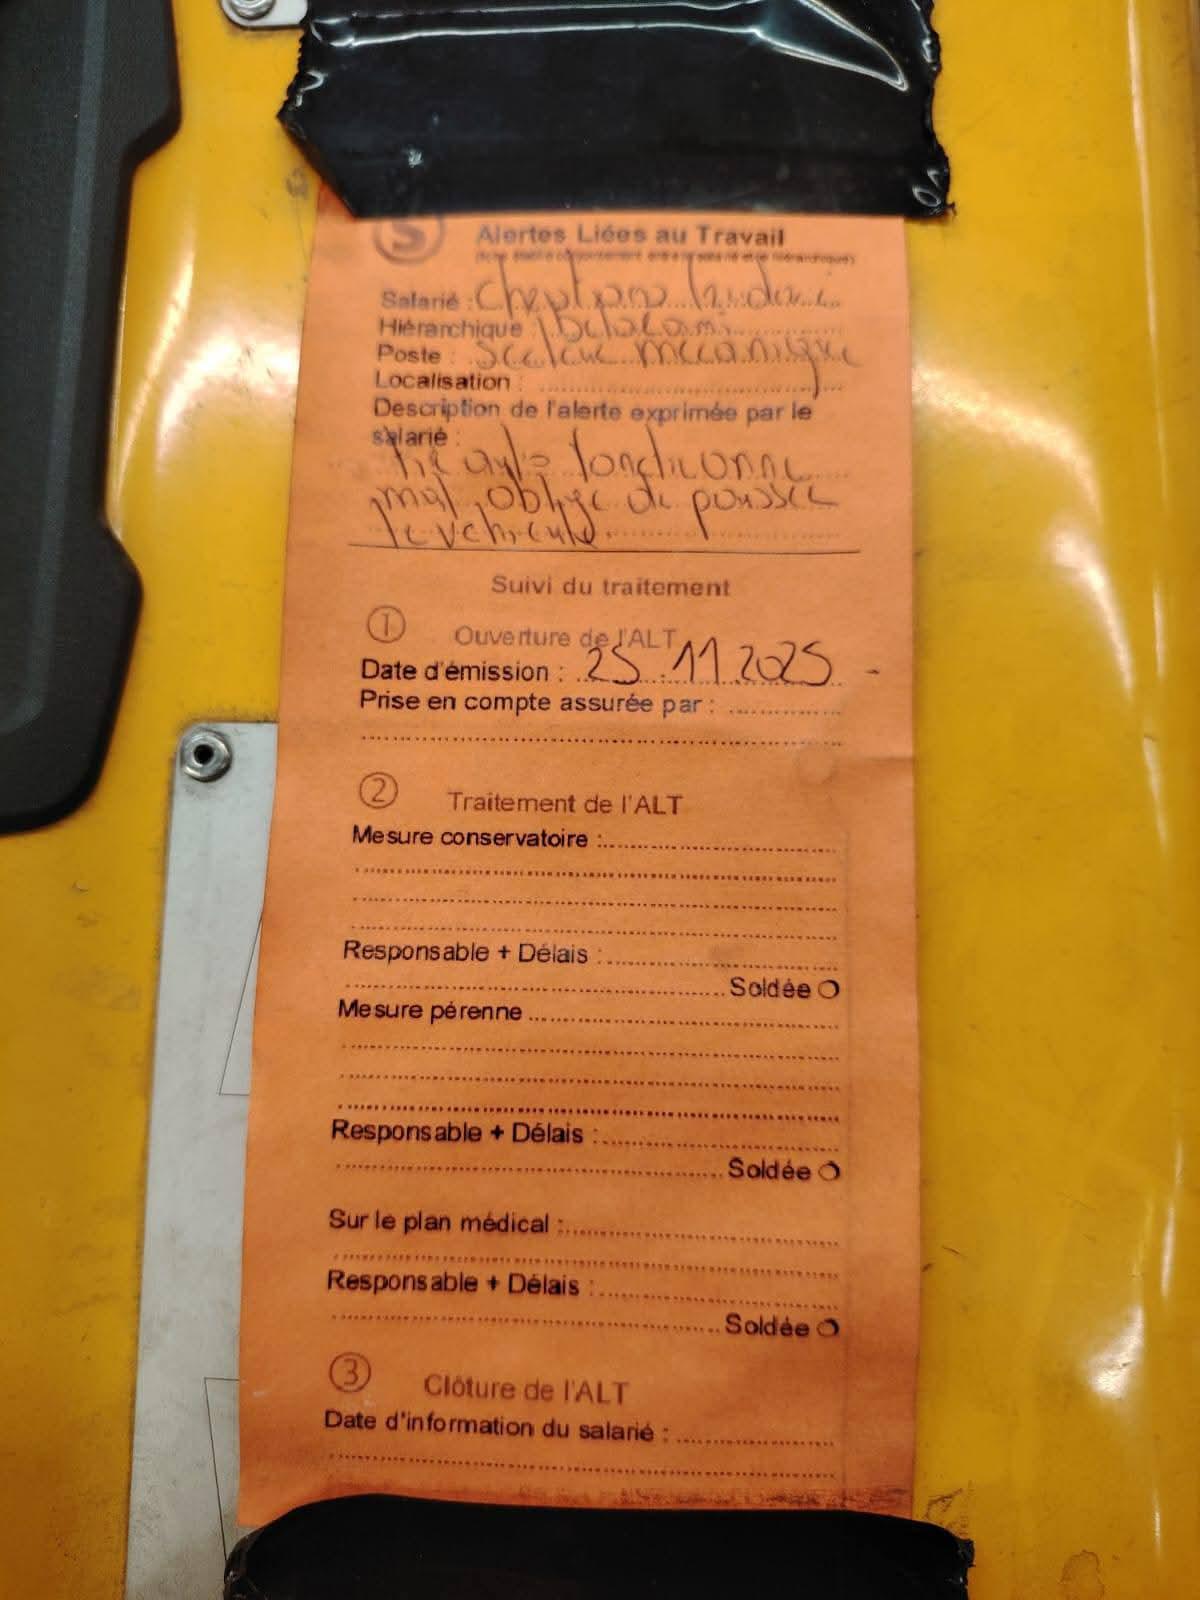 S
Alertes Liées au Travail
Salarié :
Hiérarchique :
Poste : Secteur mecanique
Localisation :
Description de l'alerte exprimée par le
salarié :
fonctionne
mal, oblige de pousser
le vehicule
Suivi du traitement
1 Ouverture de l'ALT
Date d'émission : 25.11.2025
Prise en compte assurée par :
2 Traitement de l'ALT
Mesure conservatoire :
Responsable + Délais :
Soldée
Mesure pérenne
Responsable + Délais :
Soldée
Sur le plan médical :
Responsable + Délais :
Soldée
3 Clôture de l'ALT
Date d'information du salarié :